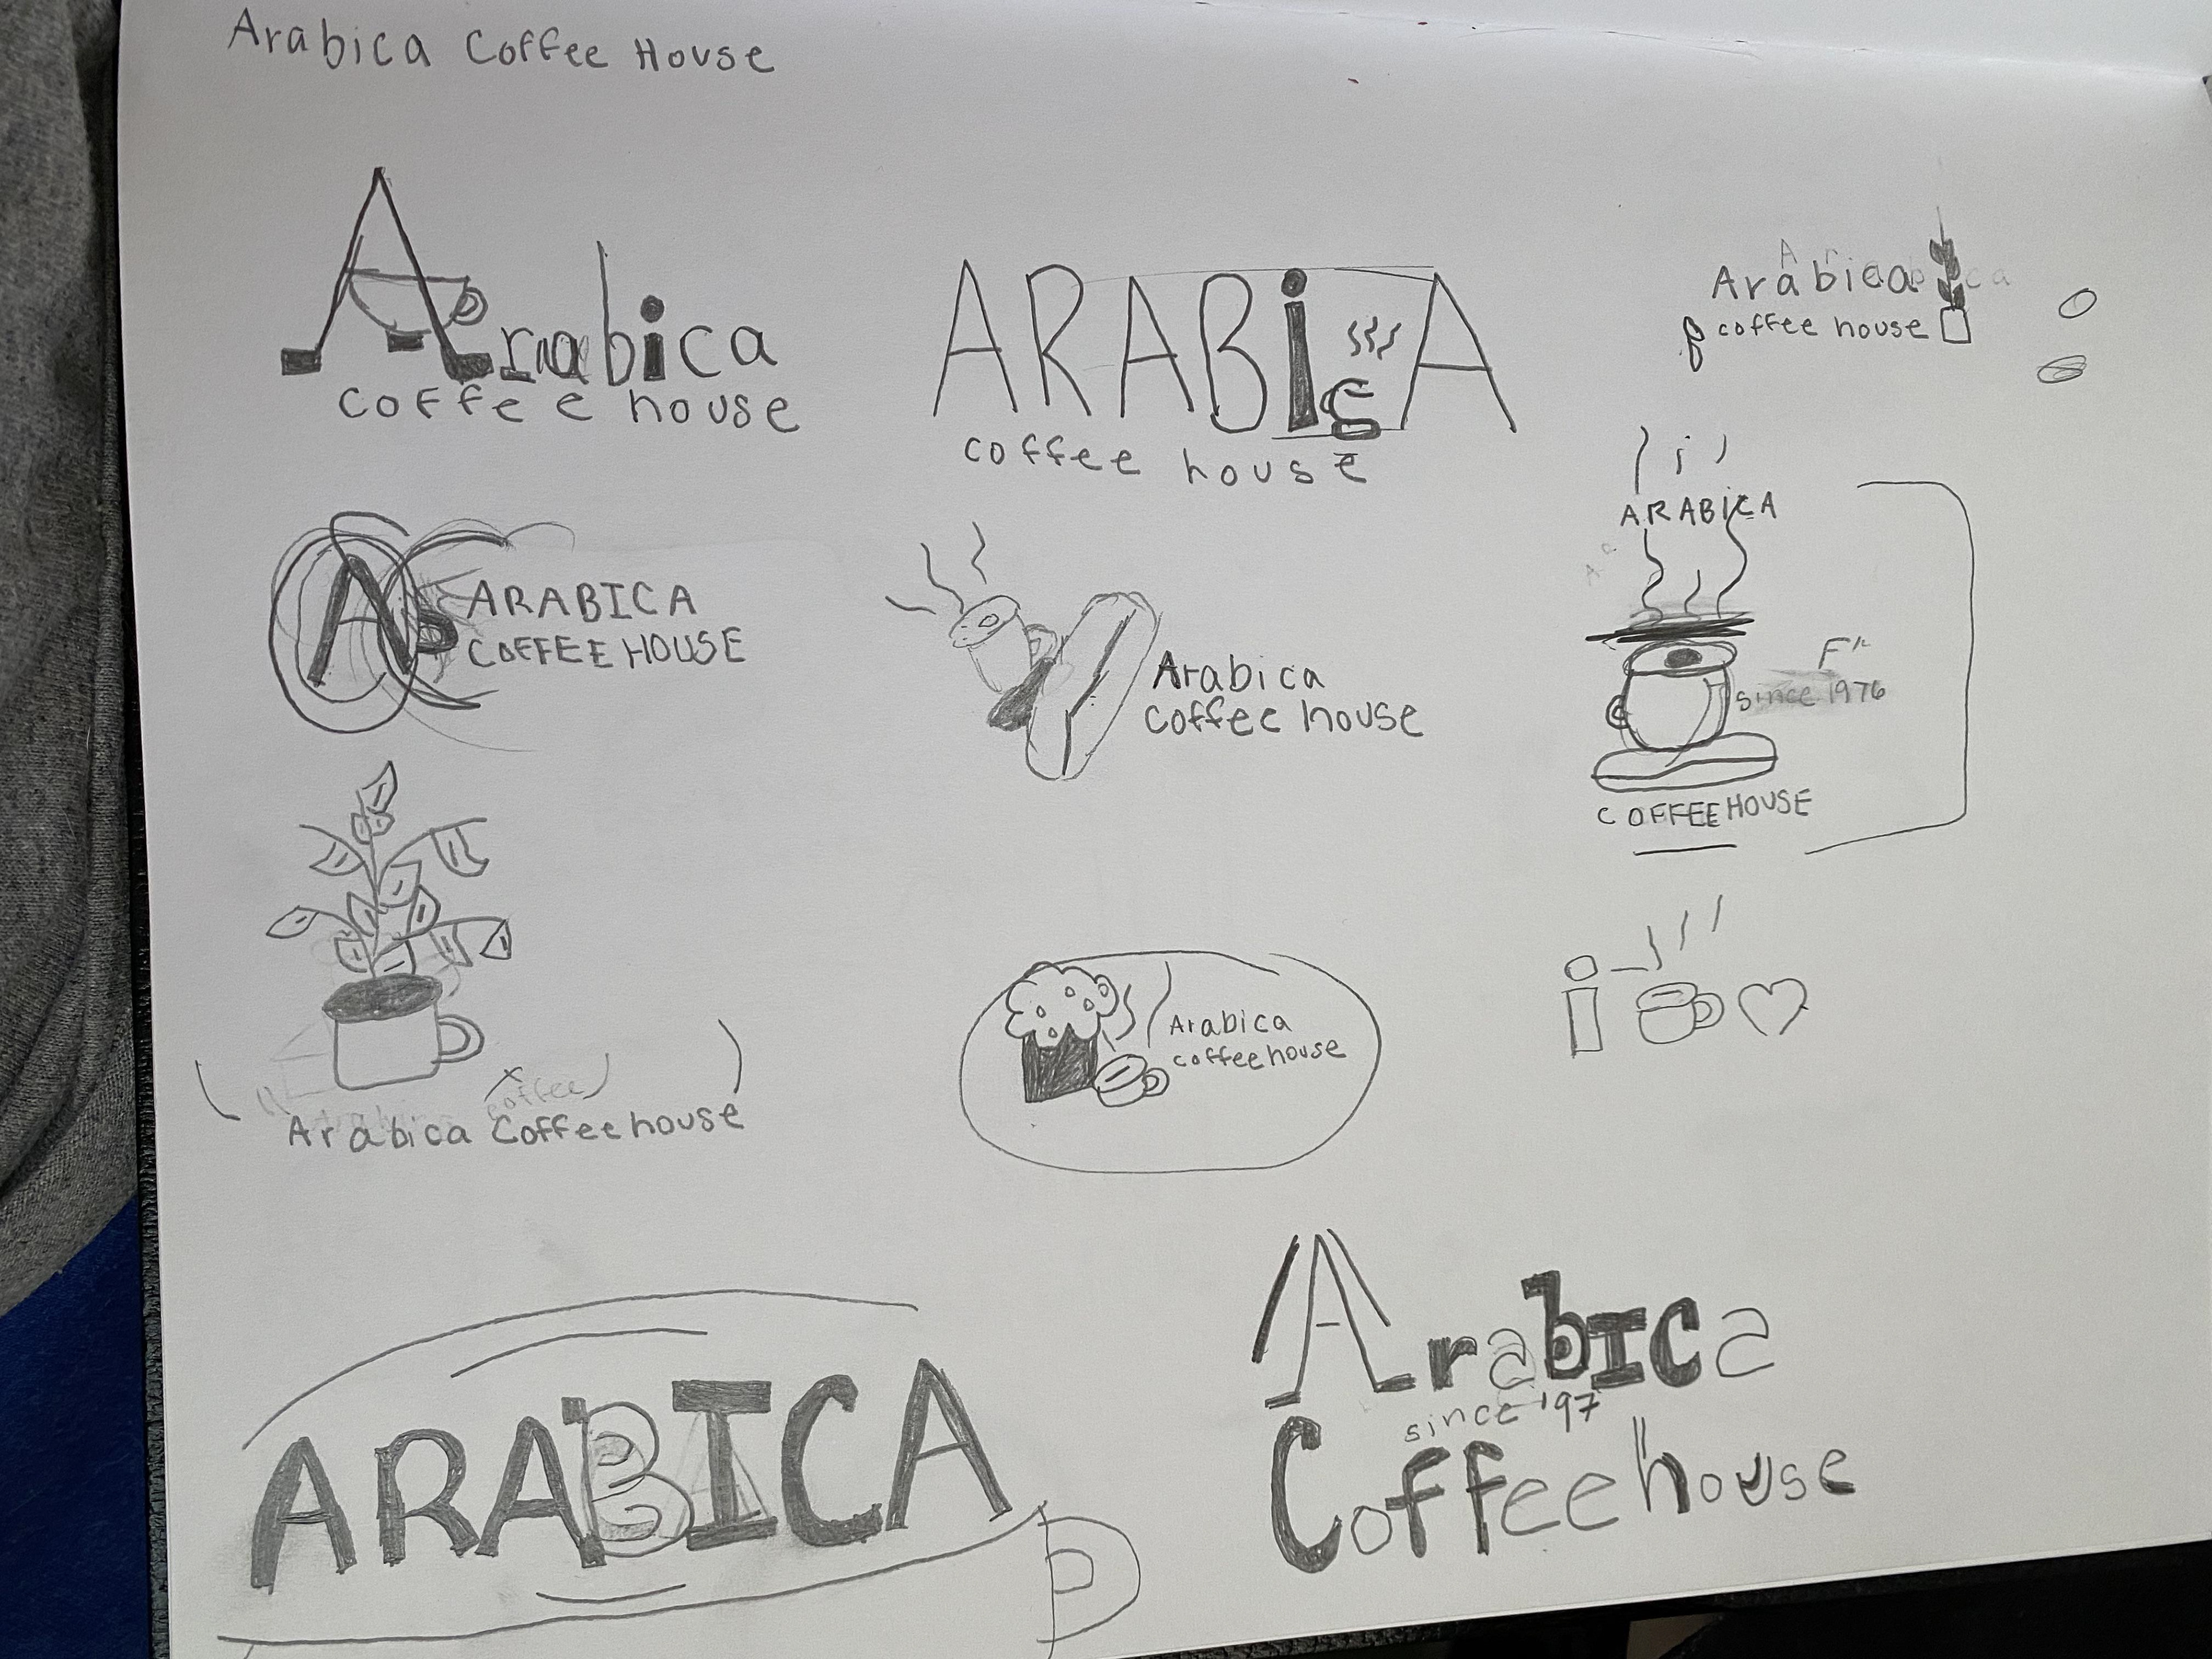 Arabica Coffee House
Arabica
coffee house
ARABiCA
coffee house
Arabica
coffee house
ARABICA
COFFEE HOUSE
Arabica
coffee house
ARABICA
since 1976
COFFEE HOUSE
Arabica Coffee house
Arabica
coffee house
i
ARABICA
ArabIca
since '97
Coffee house